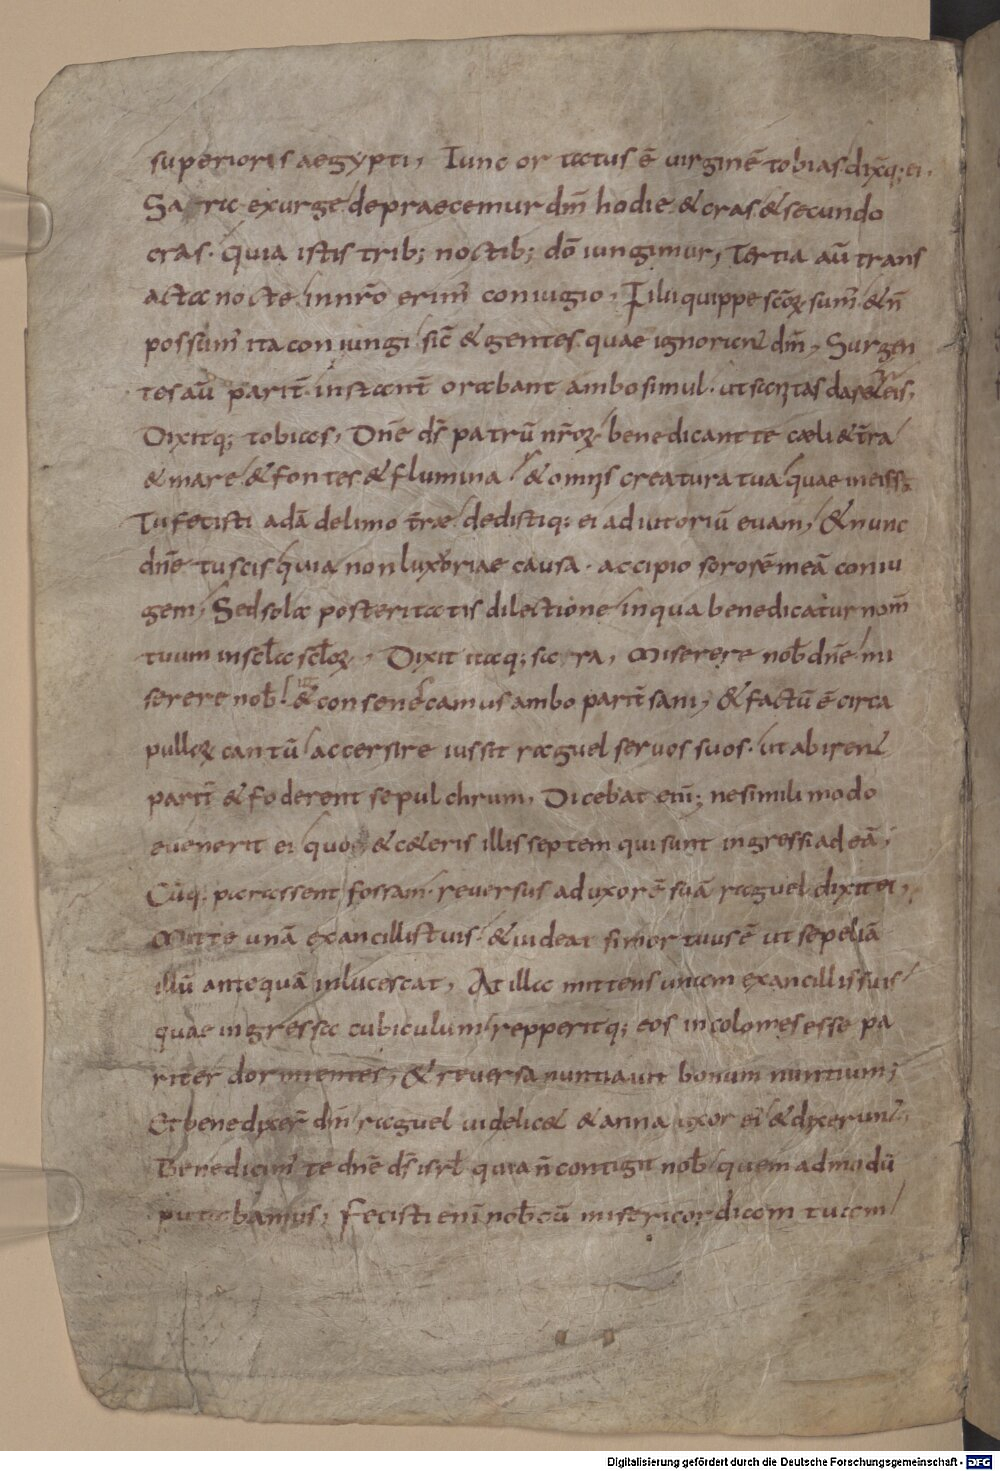 superioris aegypti, Tunc ortatus ē uirginē tobias dix̄q; ei.
Sarra exurge depraecemur dm̄ hodie & cras & secundo
cras. quia istis trib; noctib; dō iungimur, Tertia aū trans
acta nocte in nr̄o erim̄ coniugio, Filii quippe sc̄oꝝ sum̄ & n̄
possum̄ ita coniungi sic̄ & gentes quae ignorant dm̄, Surgen
tes aū parit̄ instant̄ orabant ambo simul. ut sanitas dar&ur eis,
Dixitq; tobias, Dn̄e ds̄ patrū nr̄oꝝ benedicant te caeli & t̄ra
& mare & fontes & flumina & omīs creatura tua quae in eis s̄t
Tu fecisti adā de limo t̄rae dedistiq; ei adiutoriū euam, & nunc
dn̄e tu scis quia non luxoriae causa. accipio sororē meā coniu
gem, Sed sola posteritatis dilectione in qua benedicatur nom̄
tuum in scl̄a scl̄oꝝ, Dixit itaq; sarra, Miserere nob̄ dn̄e mi
serere nob̄. & consenescamus ambo parit̄ sani, & factū ē circa
pulloꝝ cantū accersire iussit raguel seruos suos. ut abirent
parit̄ & foderent sepulchrum, Dicebat enī; ne simili modo
euenerit ei quo & c&eris illis septem qui sunt ingressi ad eā,
Cūq; parassent fossam. reuersus ad uxorē suā raguel dixit ei,
Mitte unā ex ancillis tuis. & uideat si mortuus ē ut sepeliā
illū antequā inlucescat, At illa mittens unam ex ancillis suis
quae ingressa cubiculum repperitq; eos incolomes esse pa
riter dormientes, & reuersa nuntiauit bonum nuntium;
Et benedixer̄ dm̄ raguel uidelic& & anna uxor ei' & dixerunt,
Benedicim̄ te dn̄e ds̄ isrl̄ quia n̄ contigit nob̄ quemadmodū
putabamus, Fecisti enī nob̄cū misericordiam tuam
Digitalisierung gefördert durch die Deutsche Forschungsgemeinschaft - DFG